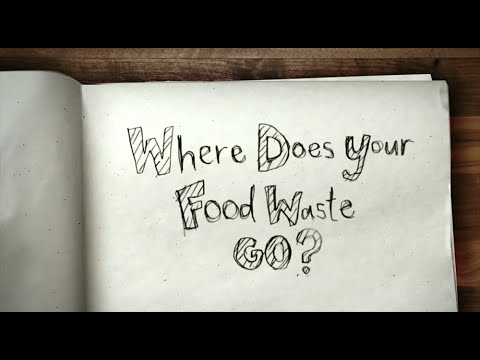 Where Does Your
Food Waste
GO?